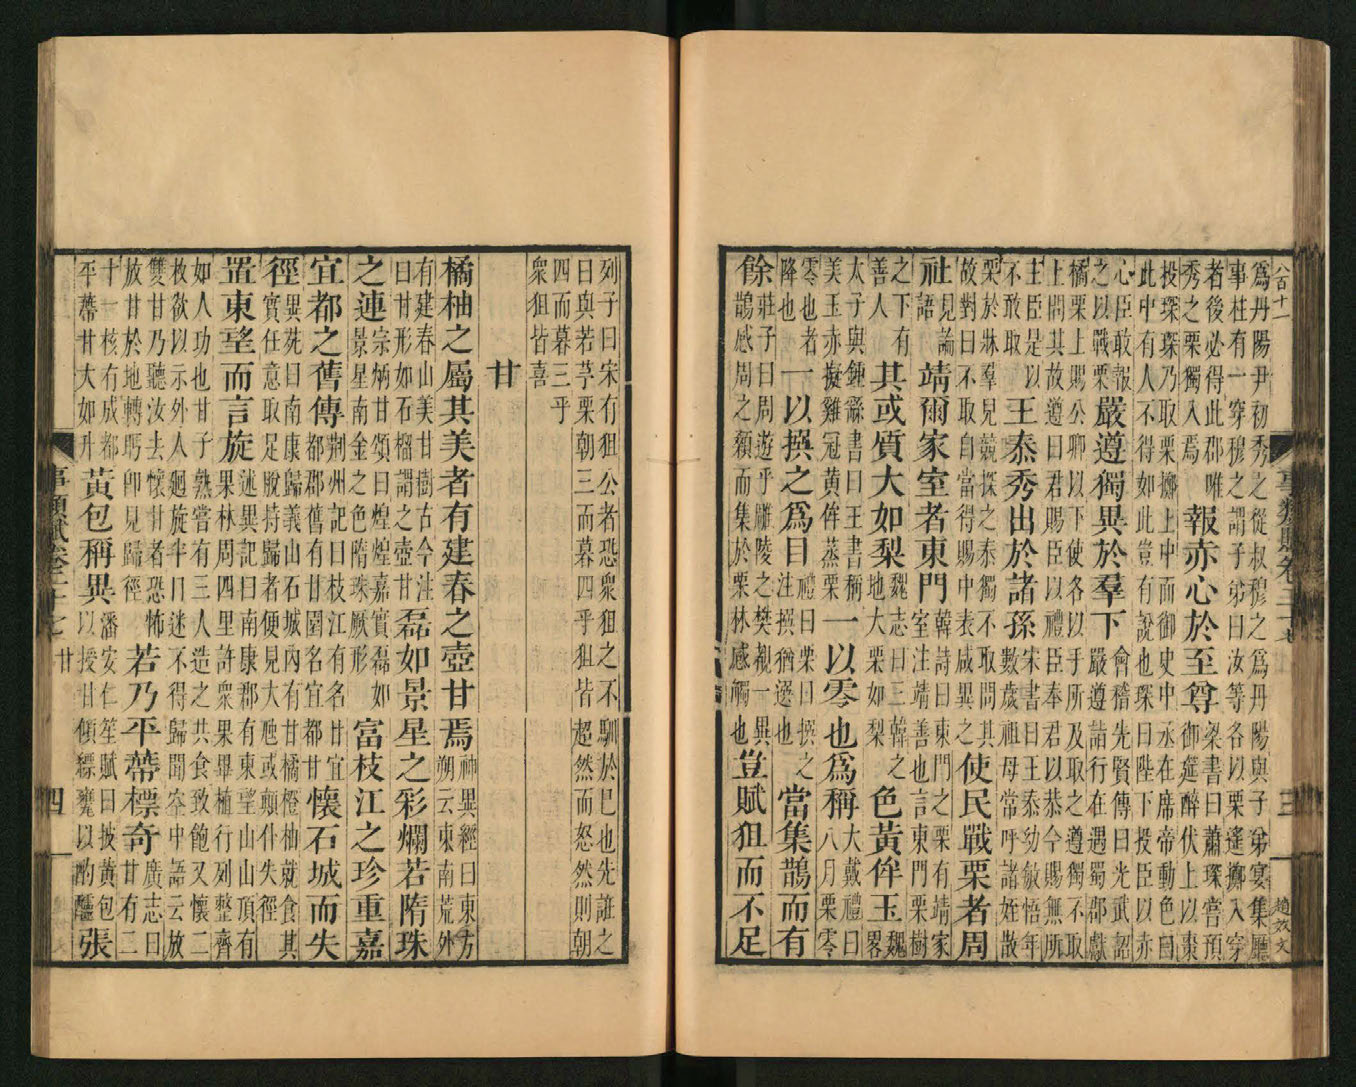 八百十二
事類賦卷二十七
三
趙政文
為丹陽尹初秀之從叔穆之為丹陽與子弟宴集廳
事柱有一穿穆之謂子弟曰汝等各以栗遙擲入穿
者後必得此郡唯
秀之栗獨入焉
報赤心於至尊
梁書曰蕭琛嘗預
御筵醉伏上以棗
投琛琛乃取栗擲上中面御史中丞在席帝動色曰
此中有人不得如此豈有說也琛曰陛下投臣以赤
心臣敢報
之以戰栗
嚴遵獨異於羣下
會稽先賢傳曰光武詔
嚴遵詣行在遇蜀郡獻
橘栗上賜公卿以下使各以手所及取之遵獨不取
上問其故遵曰君賜臣以禮臣奉君以恭今賜無所
主臣是以
不敢取
王泰秀出於諸孫
宋書曰王泰幼敏悟年
數歲祖母常呼諸姪散
栗於牀羣兒競探之泰獨不取問其
故對曰不取自當得賜中表咸異之
使民戰栗者周
社
見論
語
靖爾家室者東門
韓詩曰東門之栗有靖家
室注靖善也言東門栗樹
之下有
善人
其或質大如梨
魏志曰三韓之
地大栗如梨
色黃侔玉
魏
畧
太子與鍾繇書曰王書稱
美玉赤擬雞冠黃侔蒸栗
一以零也為稱
大戴禮曰
八月栗零
零也者
降也
一以撰之為目
禮曰栗曰撰之
注撰猶選也
當集鵲而有
餘
莊子曰周遊乎雕陵之樊覩一異
鵲感周之顙而集於栗林感觸也
豈賦狙而不足
列子曰宋有狙公者恐衆狙之不馴於已也先誑之
曰與若芧栗朝三而暮四乎狙皆超然而怒然則朝
四而暮三乎
衆狙皆喜
甘
橘柚之屬其美者有建春之壺甘焉
神異經曰東方
朔云東南荒外
有建春山美甘樹古今注
曰甘形如石橊謂之壺甘
磊如景星之彩爛若隋珠
之連
宗炳甘頌曰煌煌嘉實磊如
景星南金之色隋珠厥形
富枝江之珍重嘉
宜都之舊傳
荆州記曰枝江有名甘宜
都郡舊有甘園名宜都甘
懷石城而失
徑
異苑曰南康歸義山石城內有甘橘橙柚就食其
實任意取足脫持歸者便見大虺或顛仆失徑
置東望而言旋
述異記曰南康郡有東望山山頂有
果林周四里許衆果畢植行列整齊
如人功也甘子熟嘗有三人造之共食致飽又懷二
枚欲以示外人廻旋半日迷不得歸聞空中語云放
雙甘乃聽汝去懷甘者恐怖
放甘於地轉眄卽見歸徑
若乃平蔕標奇
廣志曰
甘有二
十一核有成都
平蔕甘大如升
黃包稱異
潘安仁笙賦曰披黃包
以授甘傾縹甆以酌醽
張
事類賦卷二十七
甘
四